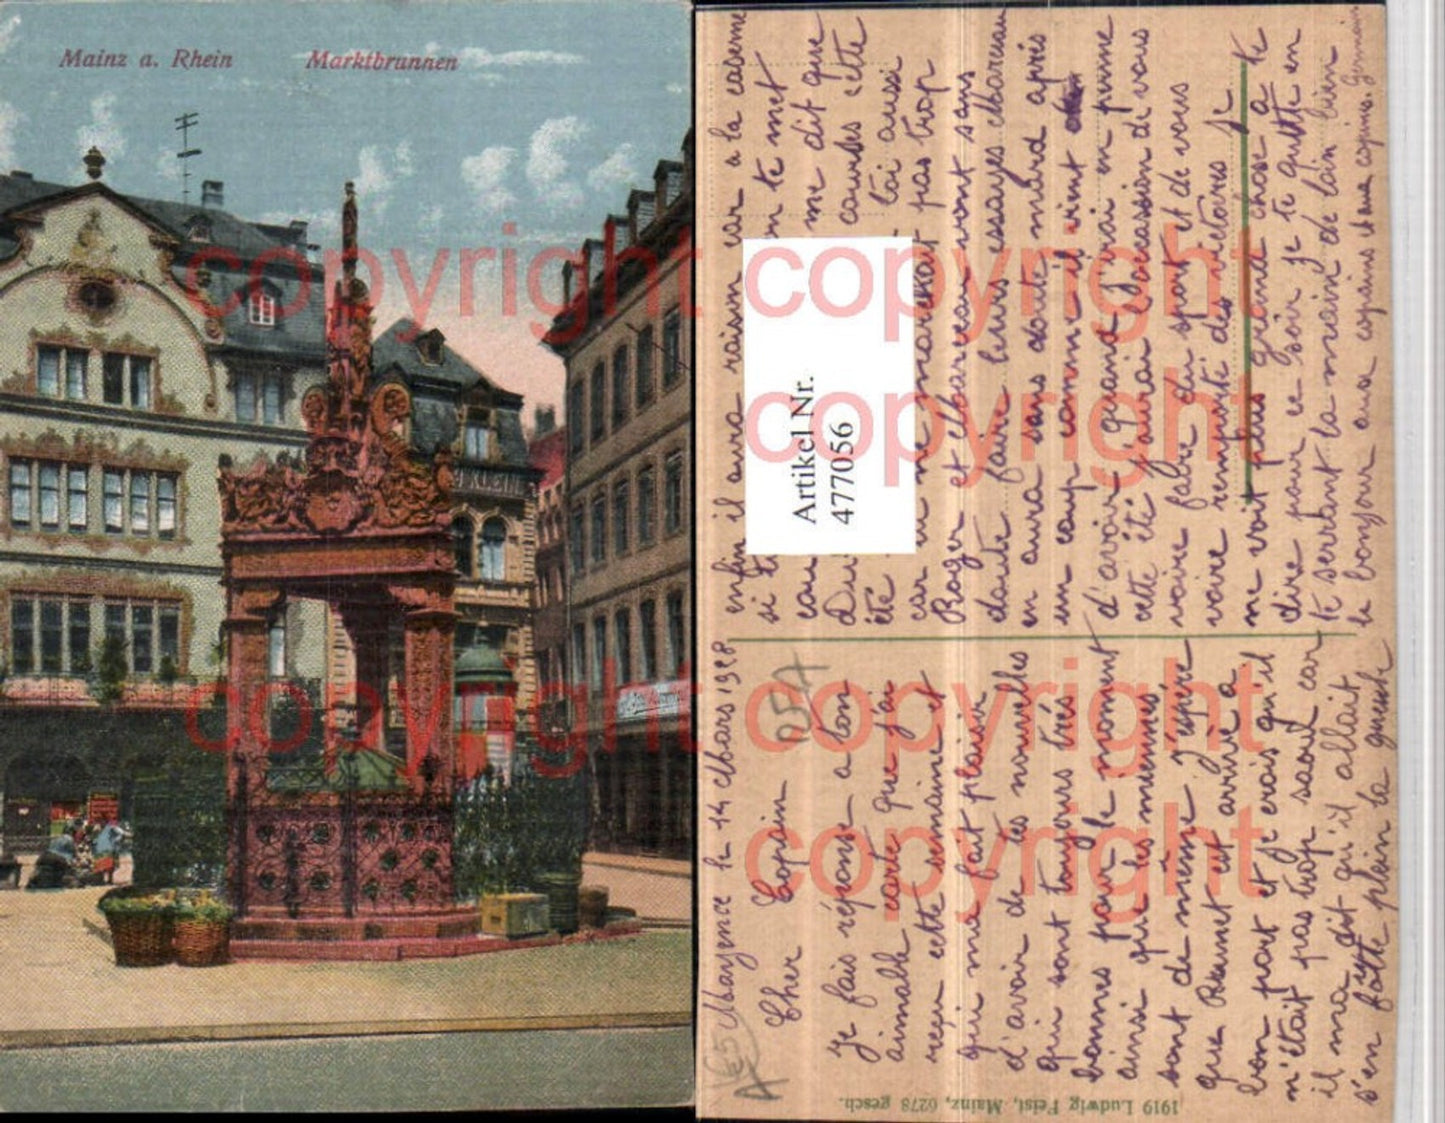 Mainz a. Rhein Marktbrunnen
KLEIN
copyright copyright
copyright
copyright copyright
copyright
Artikel Nr.
477056
Mayence le 14 Mars 1928
Cher Copain
Je fais réponse a ton
aimable carte que j'ai
reçu cette semaine et
qui m'a fait plaisir
d'avoir de tes nouvelles
qui sont toujours très
bonnes pour le moment
ainsi que les miennes
sont de même j'espère
que Brunet est arrivé a
bon port et je crois qu'il
n'était pas trop saoul car
il m'a dit qu'il allait
s'en foutre plein la gueule
enfin il aura raison car a la caserne
si t on te met
me dit que
courses cette
été toi aussi
car on me pas trop
Roger et Marceau vont sans
doute faire leurs essayes Marceau
en aura sans doute mard après
un coup comme il vient
d'avoir quand j'irai en perme
cette été j'aurai l'occassion de vous
voire faire du sport et de vous
voire remporté des victoires je
ne voit plus grand chose a te
dire pour ce soir je te quitte en
te serrant la main de loin bien
le bonjour aux copains et aux copines. Germain
1919 Ludwig Feist, Mainz, 6278 gesch.